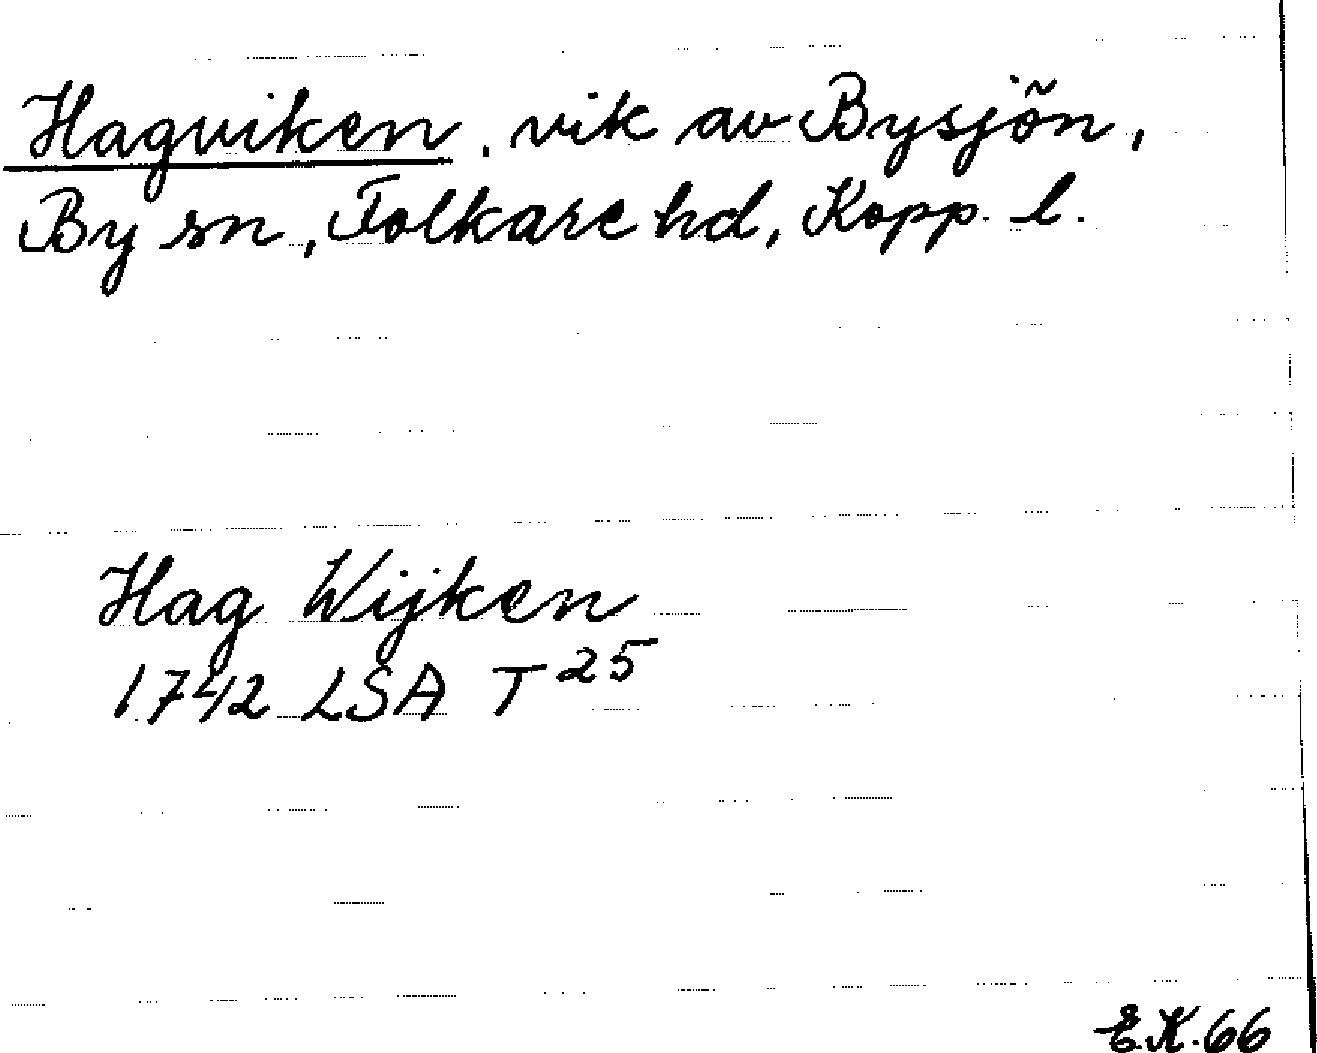 Hagviken, vik av Bysjön,
By sn, Folkare hd, Kopp. l.
Hag Wijken
1742 LSA T 25
E.K. 66